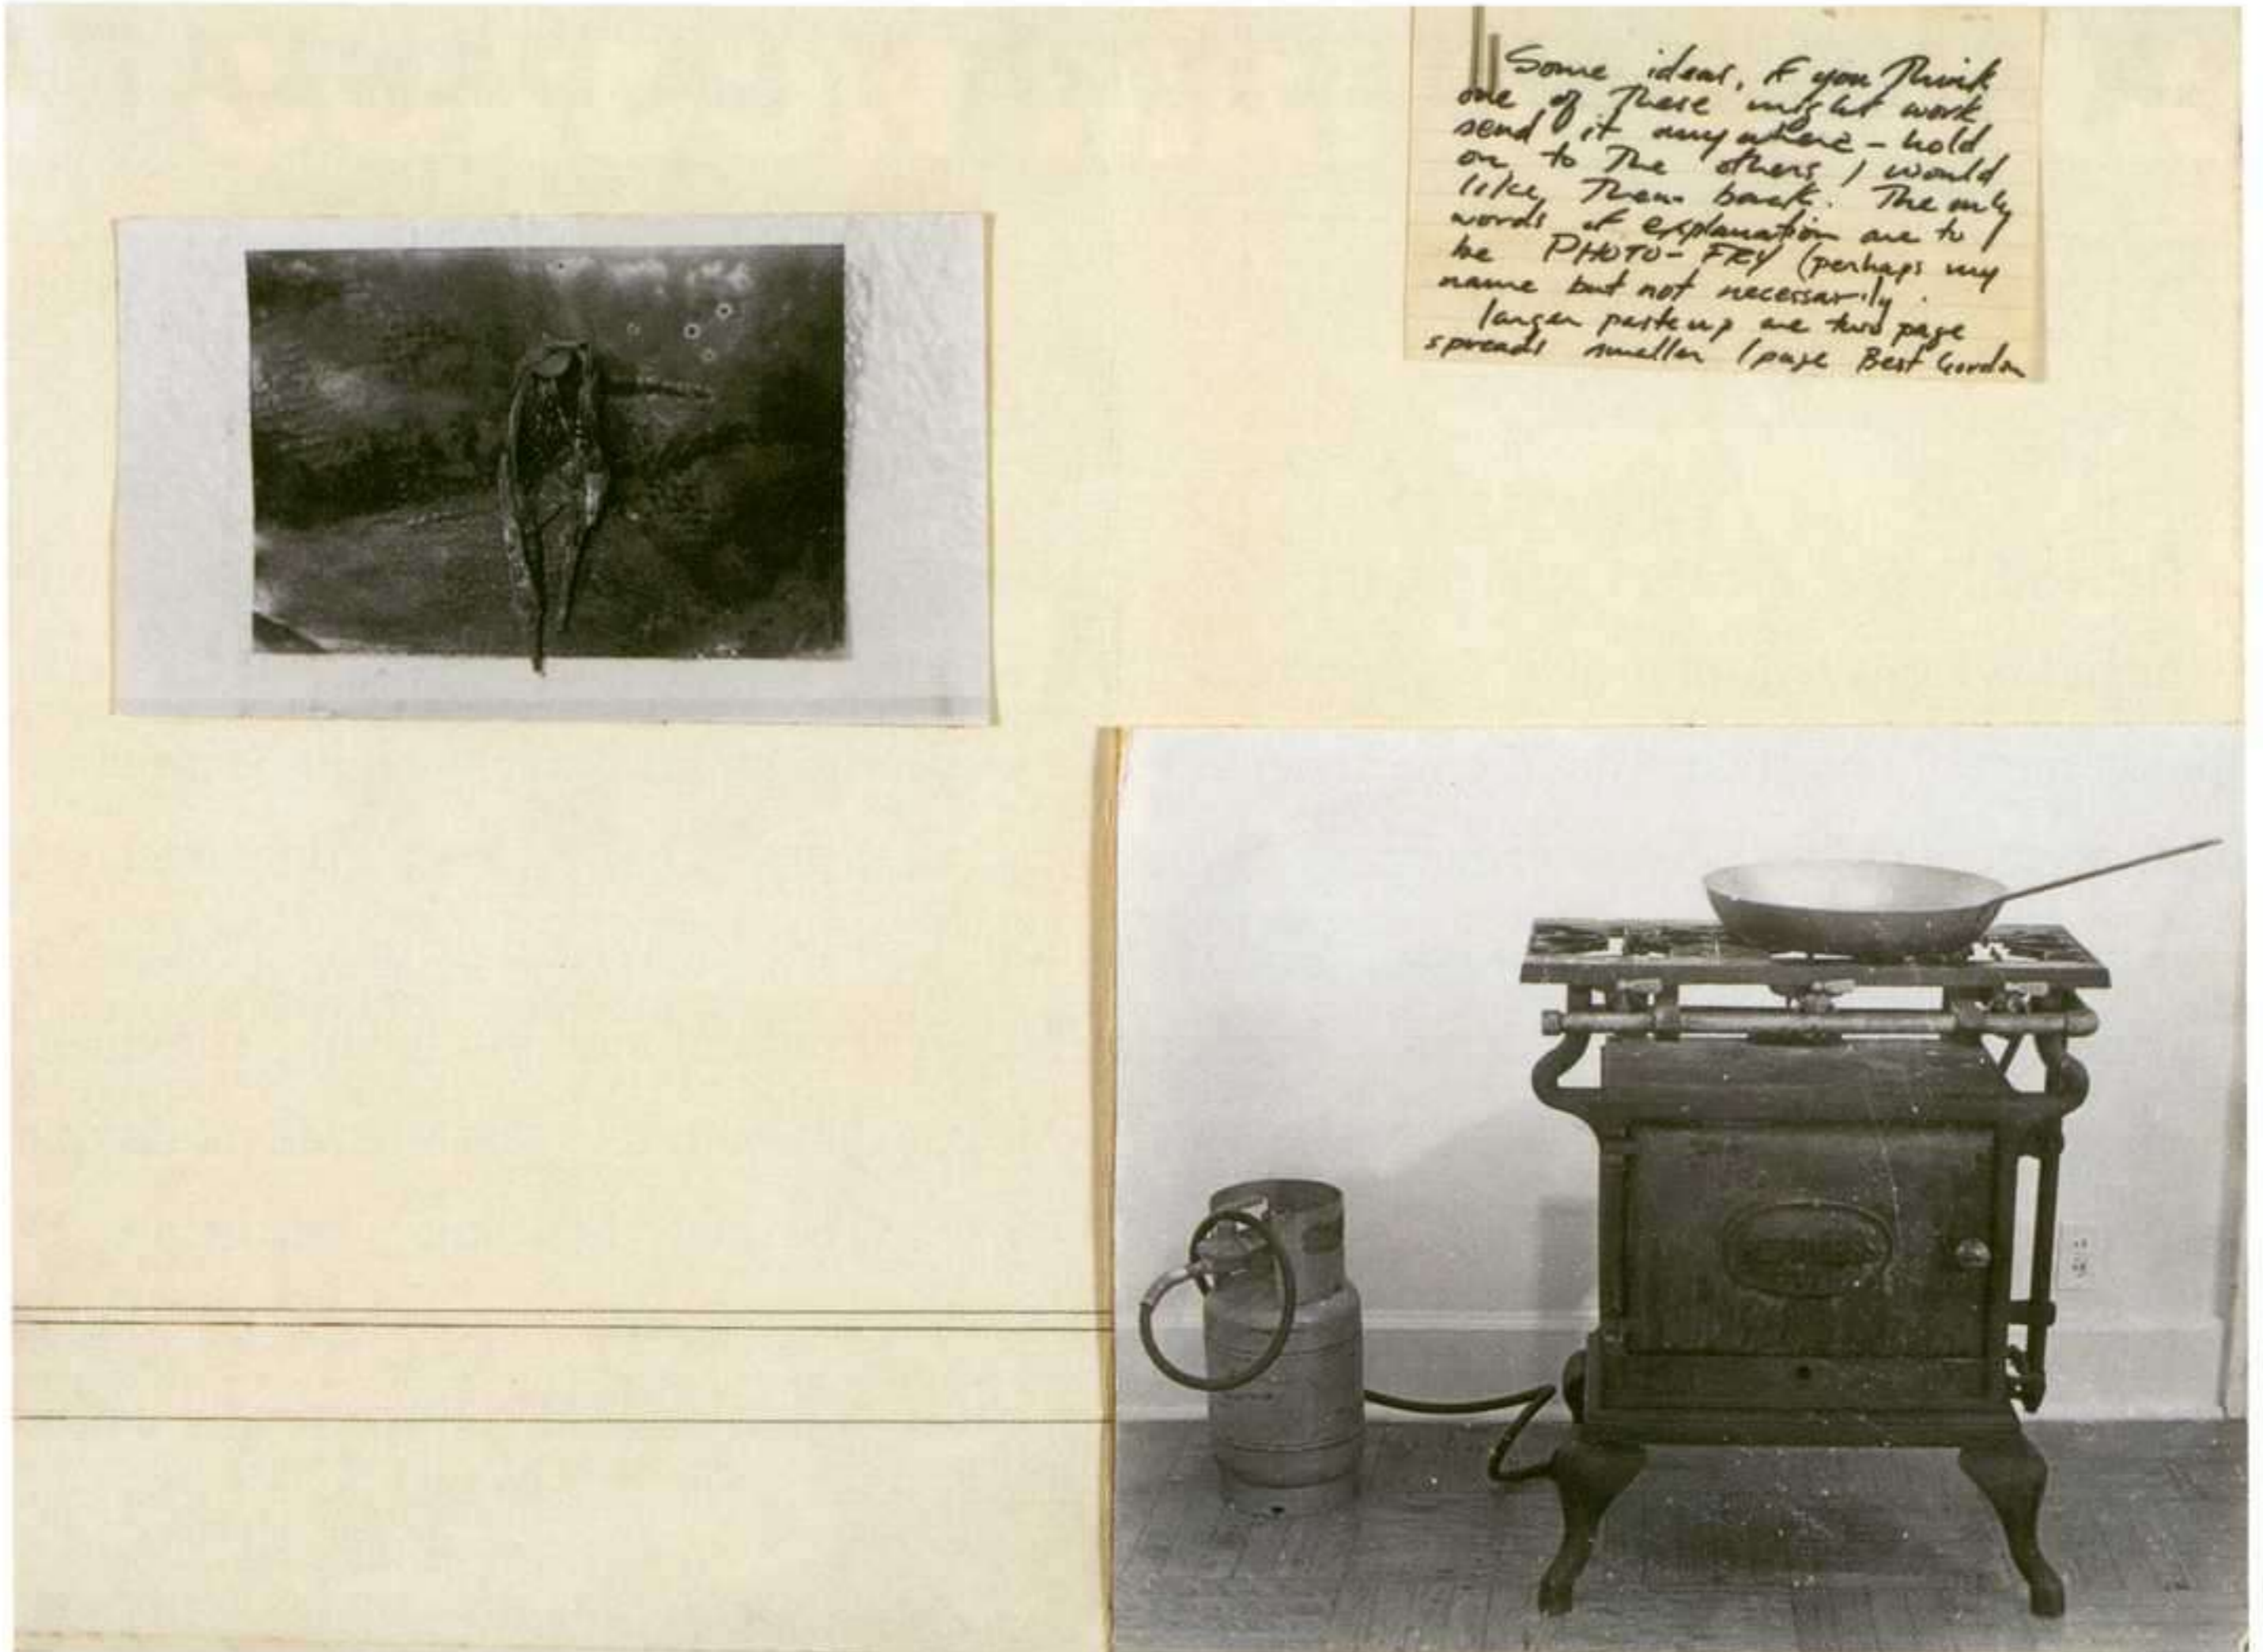 Some ideas, if you Think
one of These might work
send it anywhere - hold
on to The others I would
like Them back. The only
words of explanation are to
be PHOTO-FRY (perhaps my
name but not necessarily.
larger paste up are two page
spreads smaller 1 page Best Gordon